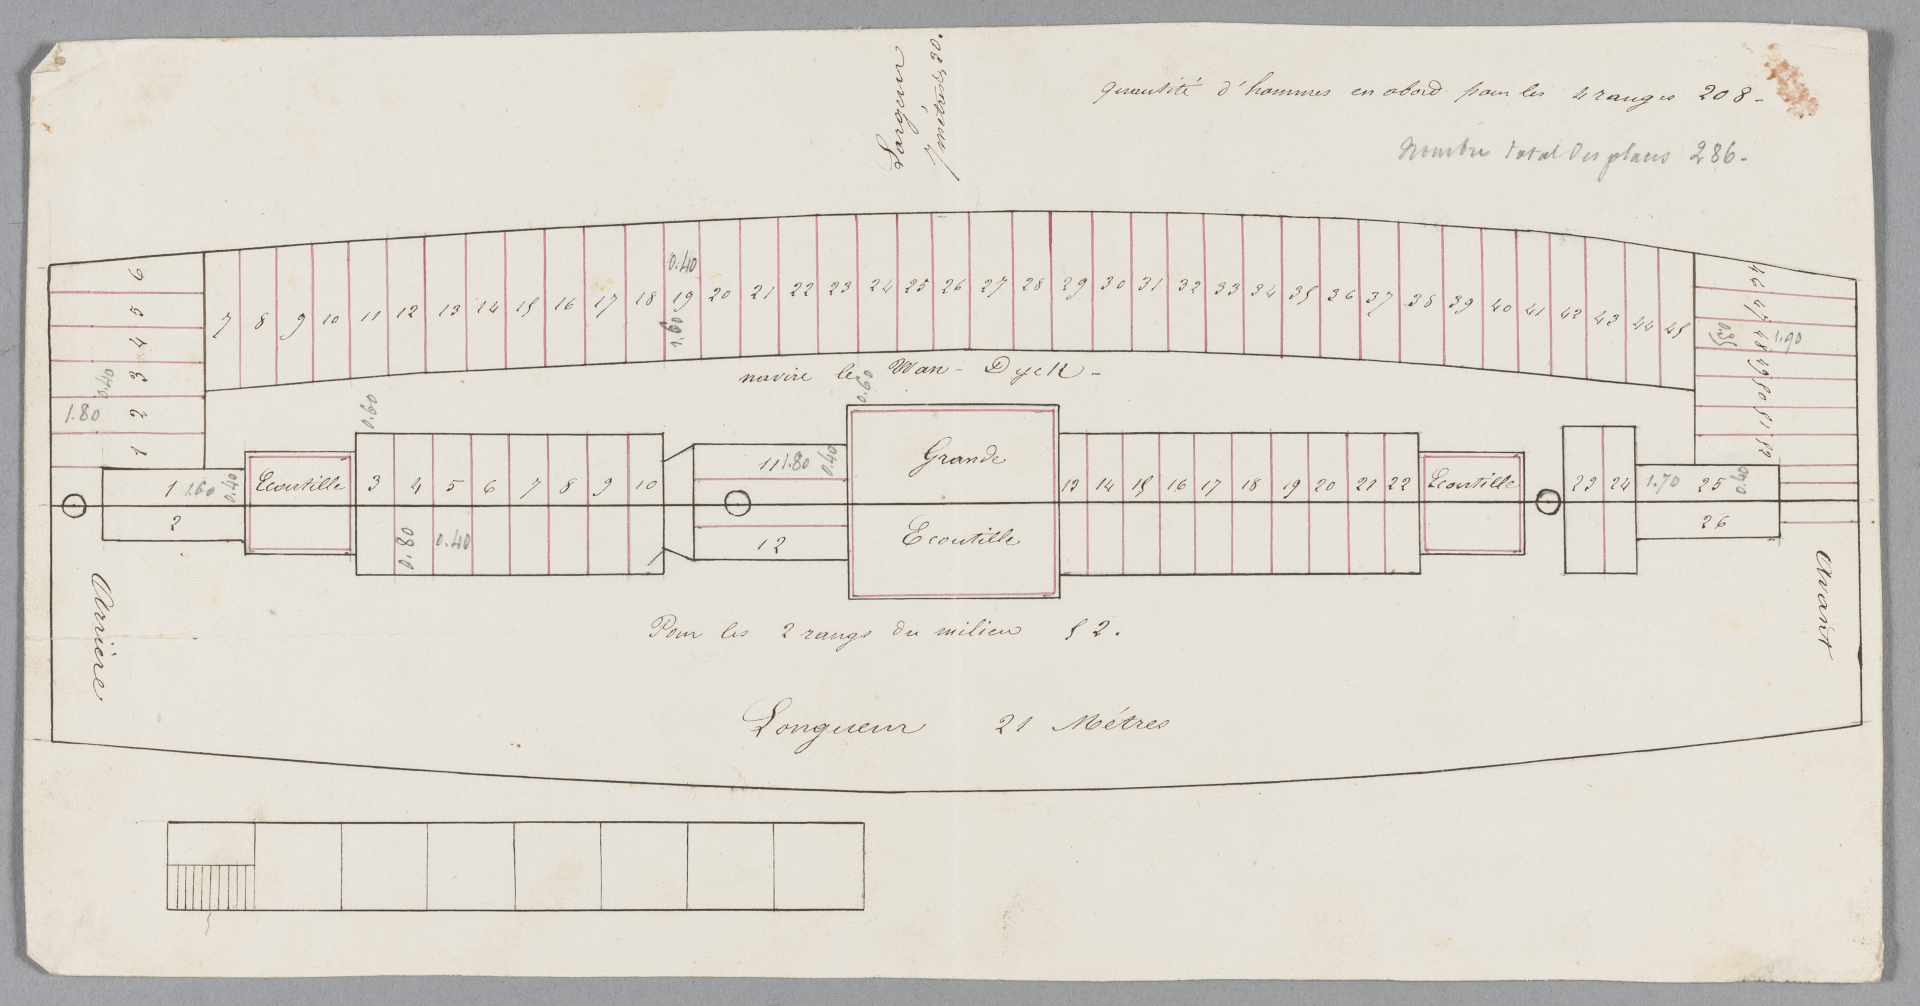 Largeur
7 mètres 30.
quantité d'hommes en abord pour les 4 ranges 208 -
Nombre total des places 286 -
6
5
4
3
2
1
0.40
1.80
7 8 9 10 11 12 13 14 15 16 17 18 19 20 21 22 23 24 25 26 27 28 29 30 31 32 33 34 35 36 37 38 39 40 41 42 43 44 45
0.40
1.60
46 47 48 49 50 51 52
0.35
1.90
navire le Wan - Dyck -
1 1.60 0.40
2
Ecoutille
0.60
3 4 5 6 7 8 9 10
0.80 0.40
11 1.80 0.40
12
0.60
Grande
Ecoutille
13 14 15 16 17 18 19 20 21 22
Ecoutille
23 24
1.70 25 0.40
26
Arrière
Avant
Pour les 2 rangs du milieu 52.
Longueur 21 Mètres